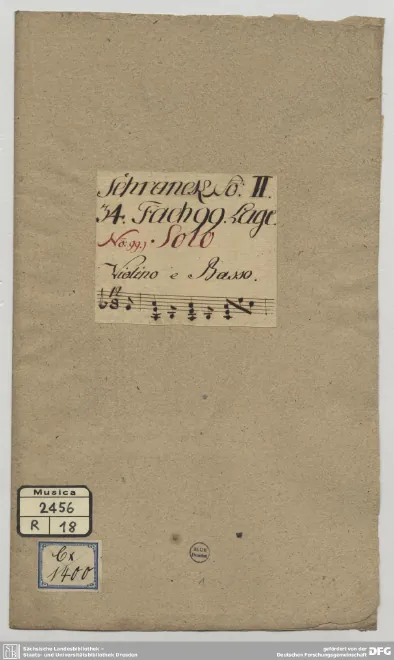 Schranck No: II.
34. Fach 99. Lage.
No: 99.) Solo
Violino e Basso.
12
8
Musica
2456
R 18
Cx
1400
1
SLUB
Sächsische Landesbibliothek –
Staats- und Universitätsbibliothek Dresden
gefördert von der
Deutschen Forschungsgemeinschaft
DFG